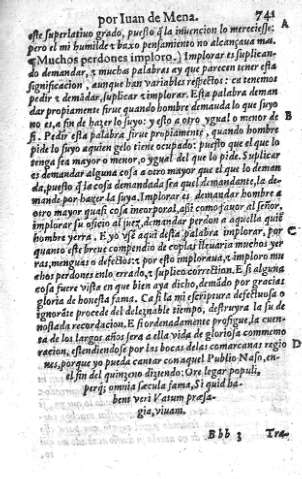 por Iuan de Mena. 741
este superlatiuo grado, puesto q̃ la inuencion lo mereciesse: A
pero el mi humilde & baxo pensamiento no alcançaua mas.
¶Muchos perdones imploro.) Implorar es suplican-
do demandar, & muchas palabras ay que parecen tener esta
significacion, aunque han variables respectos: ca tenemos
pedir & demãdar, suplicar & implorar. Esta palabra deman
dar propiamente sirue quando hombre demanda lo que suyo
no es, a fin de hazer lo suyo: y esto a otro ygual o menor de B
si. Pedir esta palabra sirue propiamente, quando hombre
pide lo suyo aquien gelo tiene ocupado: puesto que el que lo
tenga sea mayor o menor, o ygual del que lo pide. Suplicar
es demandar alguna cosa a otro mayor que el que lo deman
da, puesto q̃ la cosa demandada sea quel demandante, la de-
mande por hazer la suya. Implorar es demandar hombre a
otro mayor quasi cosa incorporal, assi como fauor al señor,
implorar su oficio al juez, demandar perdon a aquella quiẽ
hombre yerra. E yo vse aqui desta palabra implorar, por C
quanto este breue compendio de coplas lleuaria muchos yer
ras, menguas o defectos: & por esto imploraua, & imploro mu
chos perdones enlo errado, & suplico correction. E si alguna
cosa fuere vista en que bien aya dicho, demãdo por gracias
gloria de honesta fama. Ca si la mi escriptura defectuosa o
ignorãte procede del deleznable tiempo, destruyra la su de
nostada recordacion. E si ordenadamente prosigue, la cuen-
ta de los largos años sera a ella vida de gloriosa commemo
racion, estendiendose por las bocas delas comarcanas regio D
nes, porque yo pueda cantar con aquel Publio Naso, en-
el fin del quinzeno diziendo: Ore legar populi,
perq; omnia sæcula fama, Si quid ha-
bent veri Vatum præsa-
gia, viuam.
Bbb 3 Tra-